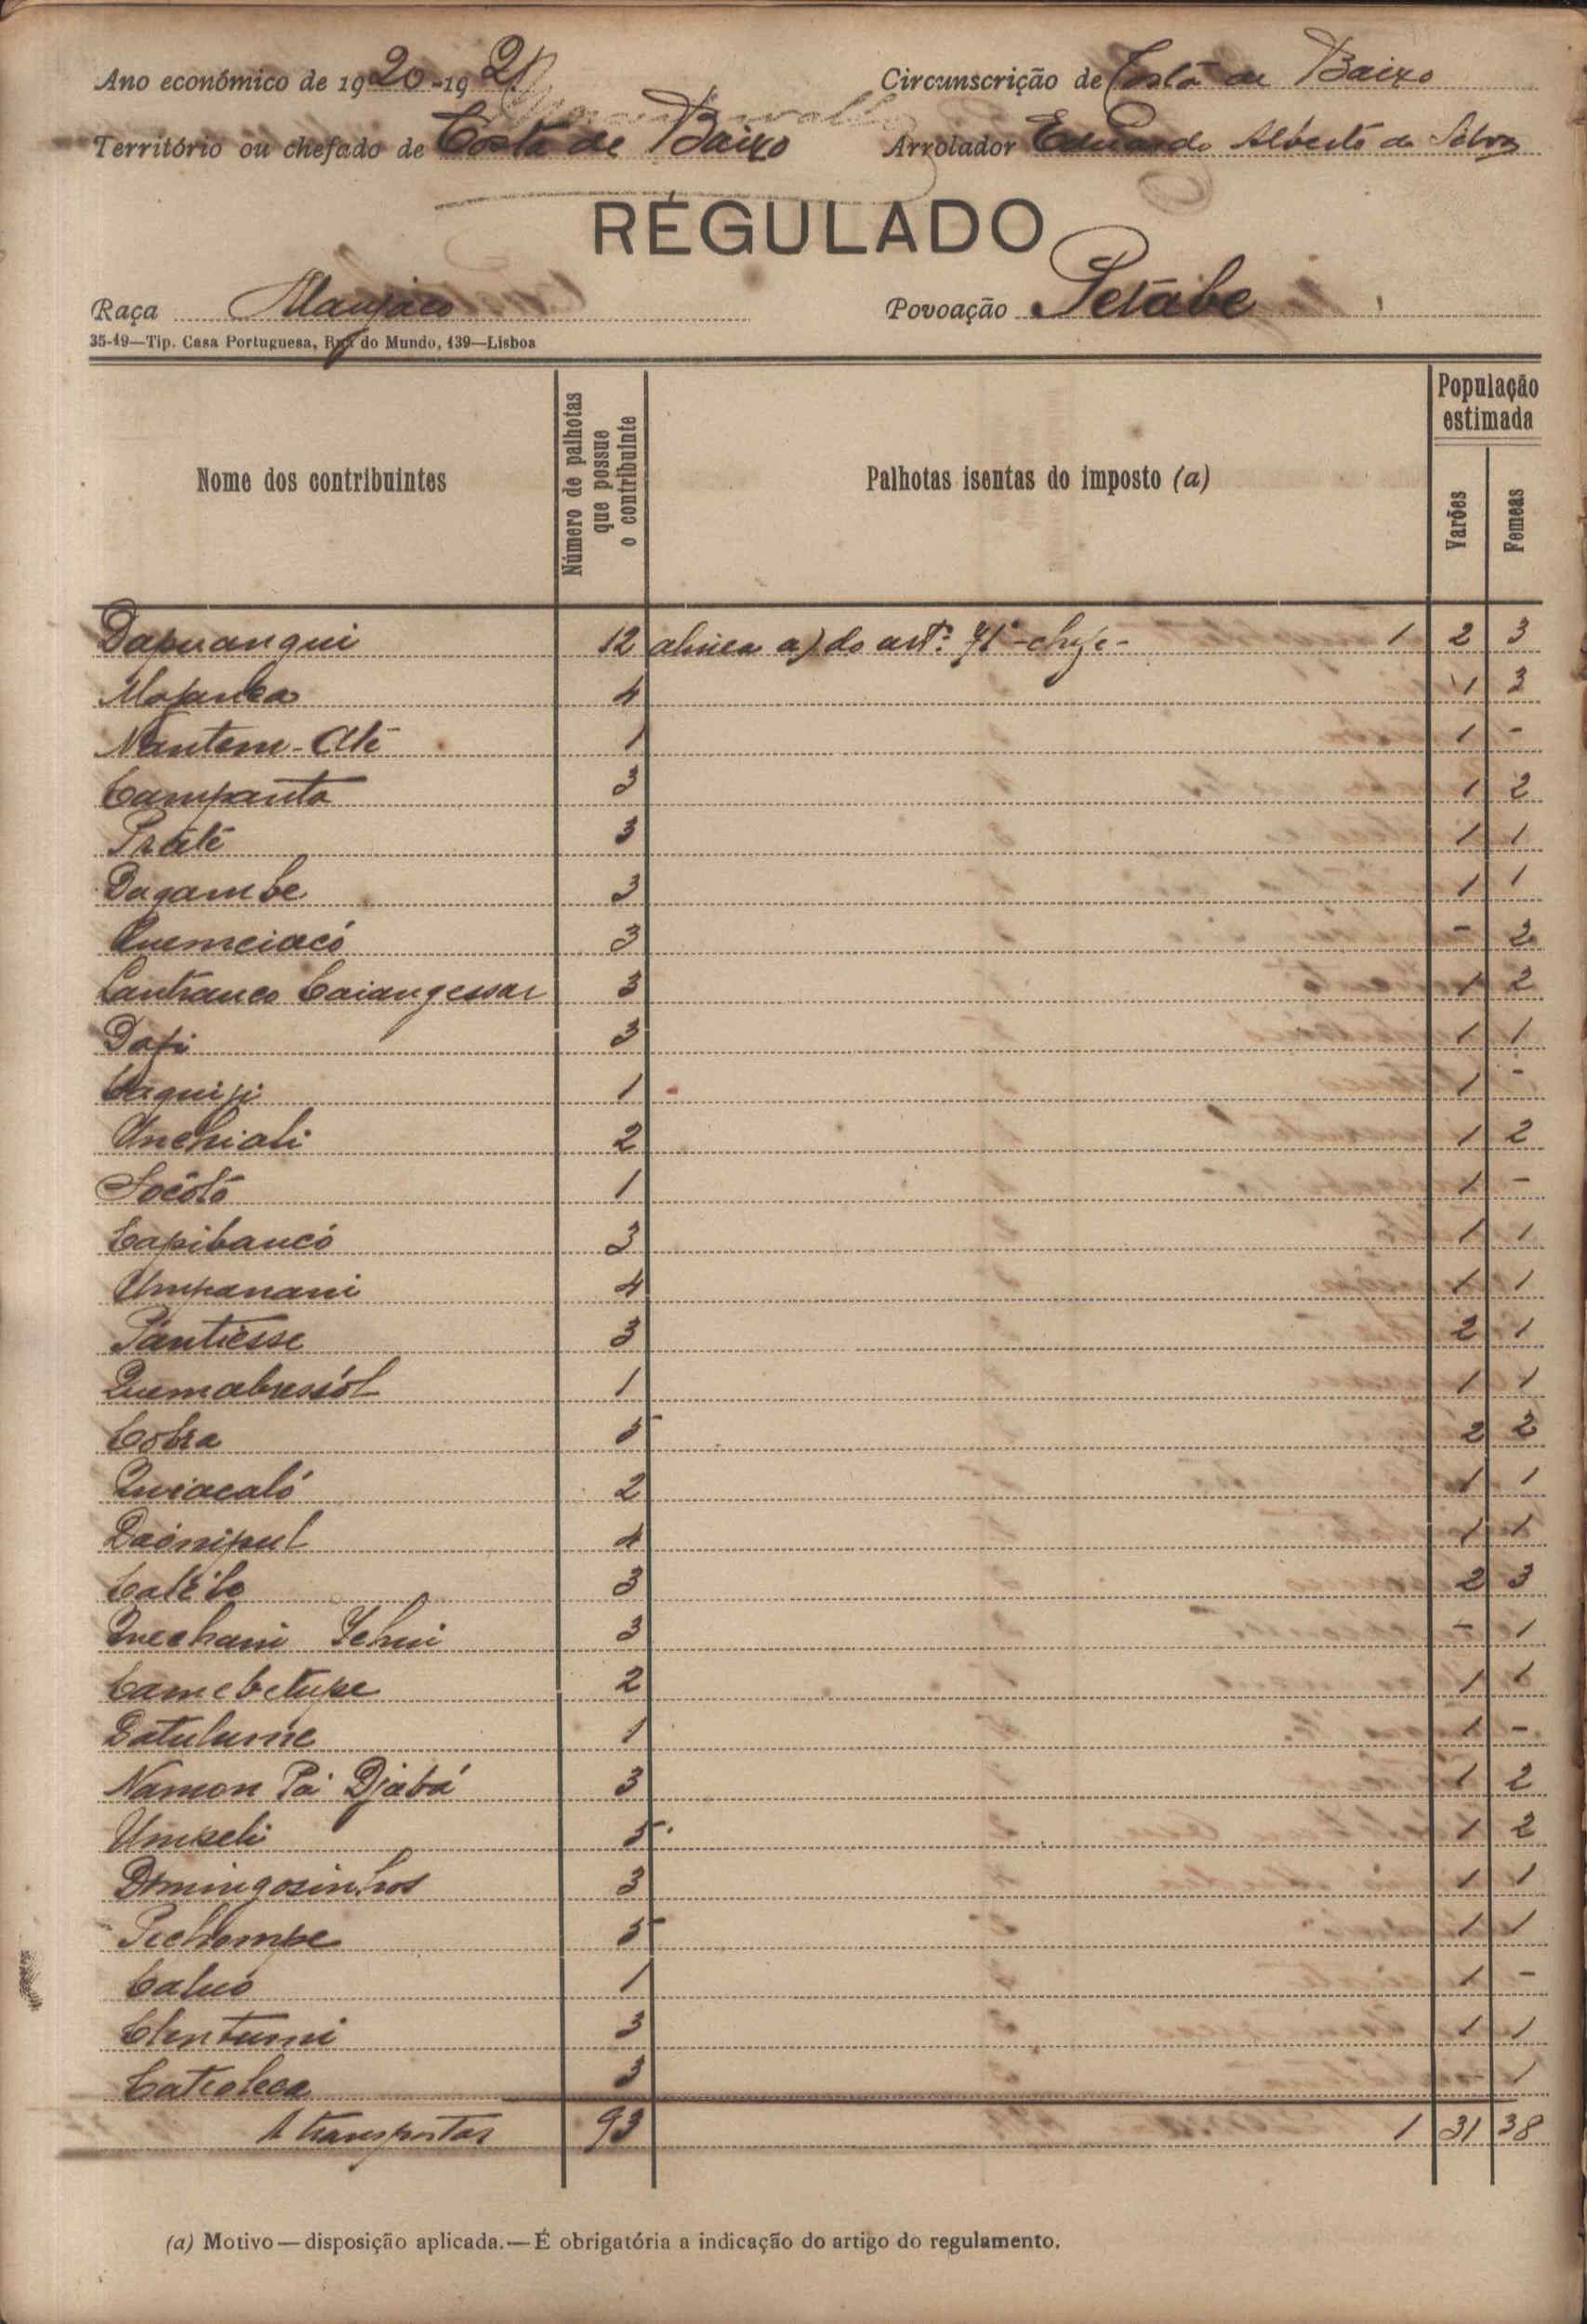 Ano económico de 1920-1921
Circunscrição de Costa de Baixo
Território ou chefado de Costa de Baixo
Arrolador Eduardo Alberto da Silva
REGULADO
Raça Manjaco
Povoação Petabe
35-19—Tip. Casa Portuguesa, Rua do Mundo, 139—Lisboa
Nome dos contribuintes
Número de palhotas que possue o contribuinte
Palhotas isentas do imposto (a)
População estimada
Varões
Femeas
Dapuangui 12 alinea a) do artº 71º -chefe- 1 2 3
4 1 3
Nantem-Até 1 1 -
Campanta 3 1 2
3 1 1
Dagambe 3 1 1
Quemciacó 3 - 2
Caiangessar 3 1 2
3 1 1
1 1 -
Unchiali 2 1 2
Socóló 1 1 -
Capibancó 3 1 1
Umpanani 4 1 1
Pantiesse 3 2 1
Quemabussól 1 1 1
Cobra 5 2 2
Quiacaló 2 1 1
4 1 1
3 2 3
3 - 1
Camebetupe 2 1 1
Datulume 1 1 -
Namon Pá Djabá 3 1 2
Umpeli 5 1 2
Domingosinhos 3 1 1
Pechompe 5 1 1
1 1 -
3 1 1
Catioleca 3 - 1
A transportar 93 1 31 38
(a) Motivo—disposição aplicada.—É obrigatória a indicação do artigo do regulamento.